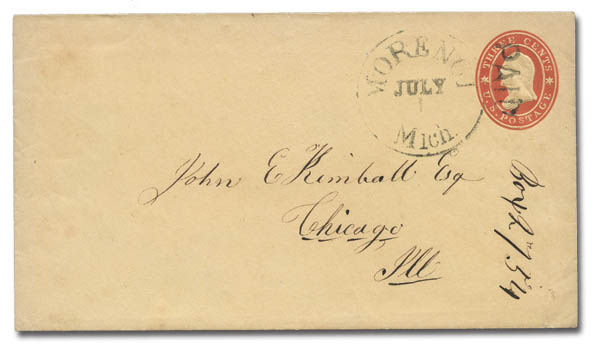 MORENCI
JULY
1
Mich.
THREE CENTS
U.S. POSTAGE
PAID
John E Kimball Esq
Chicago
Ill
Box 2754